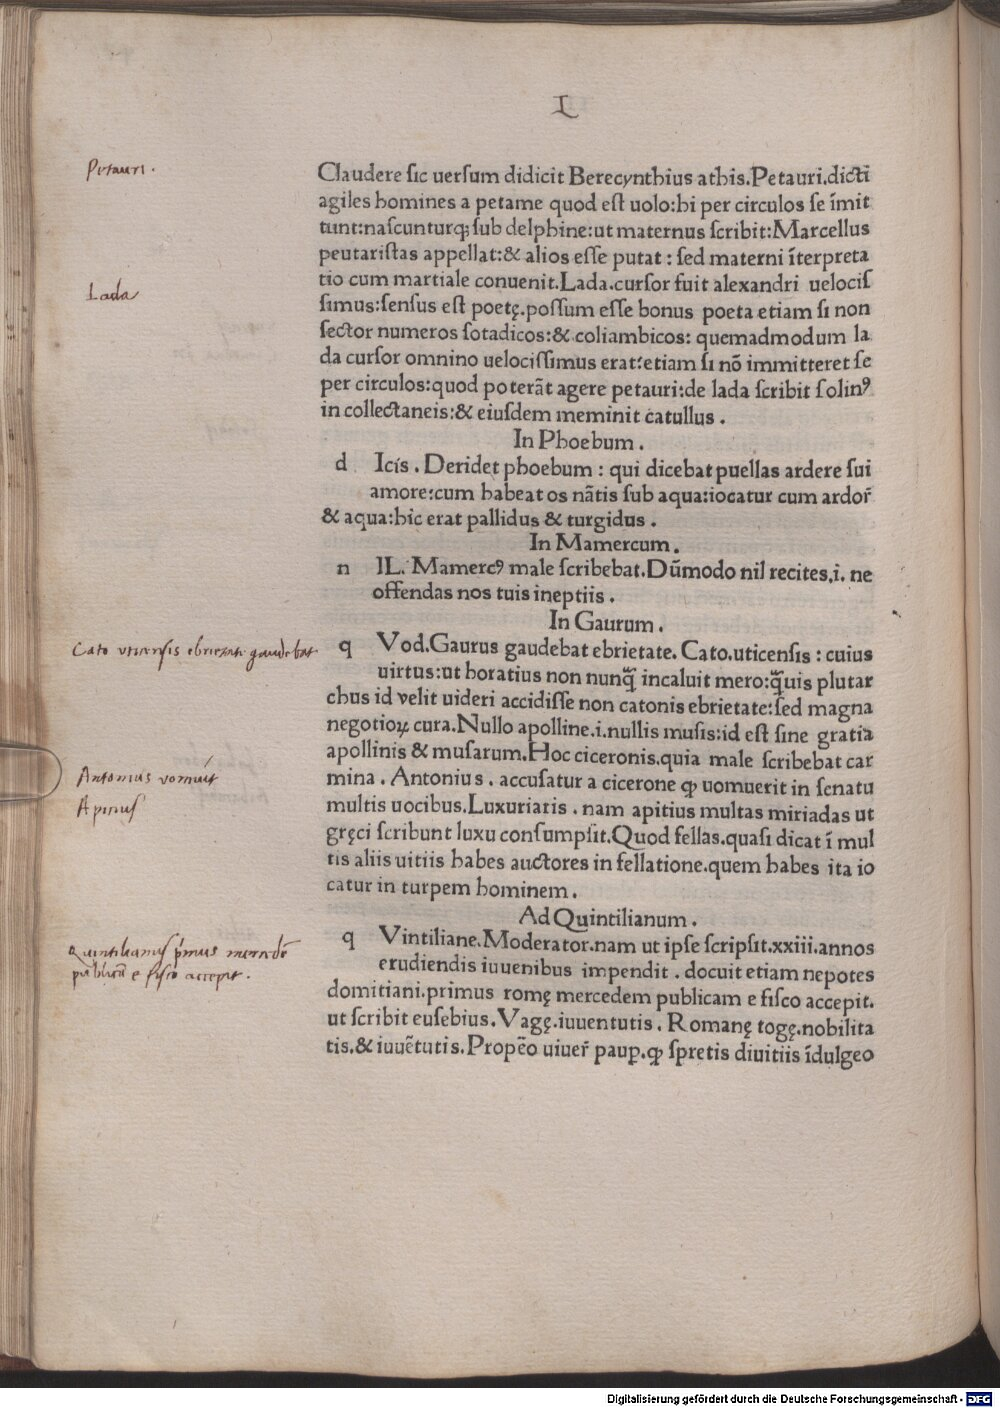 L
Petauri.
Claudere ſic uerſum didicit Berecynthius athis.Petauri.dicti
agiles homines a petame quod eſt uolo:hi per circulos ſe īmit
tunt:naſcunturq; ſub delphine:ut maternus ſcribit:Marcellus
peutariſtas appellat:& alios eſſe putat : ſed materni īterpreta
Lada
tio cum martiale conuenit.Lada.curſor fuit alexandri uelociſ
ſimus:ſenſus eſt poetę.poſſum eſſe bonus poeta etiam ſi non
ſector numeros ſotadicos:& coliambicos: quemadmodum la
da curſor omnino uelociſſimus erat:etiam ſi nō immitteret ſe
per circulos:quod poterāt agere petauri:de lada ſcribit ſolinꝰ
in collectaneis:& eiuſdem meminit catullus .
In Phoebum .
d Icis . Deridet phoebum : qui dicebat puellas ardere ſui
amore:cum habeat os nātis ſub aqua:iocatur cum ardor̄
& aqua:hic erat pallidus & turgidus .
In Mamercum .
n IL. Mamercꝰ male ſcribebat.Dūmodo nil recites.i. ne
offendas nos tuis ineptiis .
In Gaurum .
Cato uticensis ebrietate gaudebat
q Vod.Gaurus gaudebat ebrietate. Cato.uticenſis : cuius
uirtus:ut horatius non nunq̄ incaluit mero:q̄uis plutar
chus id velit uideri accidiſſe non catonis ebrietate:ſed magna
negotioꝝ cura.Nullo apolline.i.nullis muſis:id eſt ſine gratia
apollinis & muſarum.Hoc ciceronis.quia male ſcribebat car
Antonius vomuit
mina . Antonius . accuſatur a cicerone ꝙ uomuerit in ſenatu
multis uocibus.Luxuriatis . nam apitius multas miriadas ut
gręci ſcribunt luxu conſumpſit.Quod fellas.quaſi dicat ī mul
tis aliis uitiis habes auctores in fellatione.quem habes ita io
catur in turpem hominem .
Ad Quintilianum .
Quintilianus p̄mus mercedē
publicā e fisco accepit.
q Vintiliane.Moderator.nam ut ipſe ſcripſit.xxiii.annos
erudiendis iuuenibus impendit . docuit etiam nepotes
domitiani.primus romę mercedem publicam e fiſco accepit.
ut ſcribit euſebius.Vagę.iuuentutis . Romanę togę.nobilita
tis.& iuuētutis.Propēo uiuer̄ paup̲.ꝙ ſpretis diuitiis īdulgeo
Digitalisierung gefördert durch die Deutsche Forschungsgemeinschaft - DFG